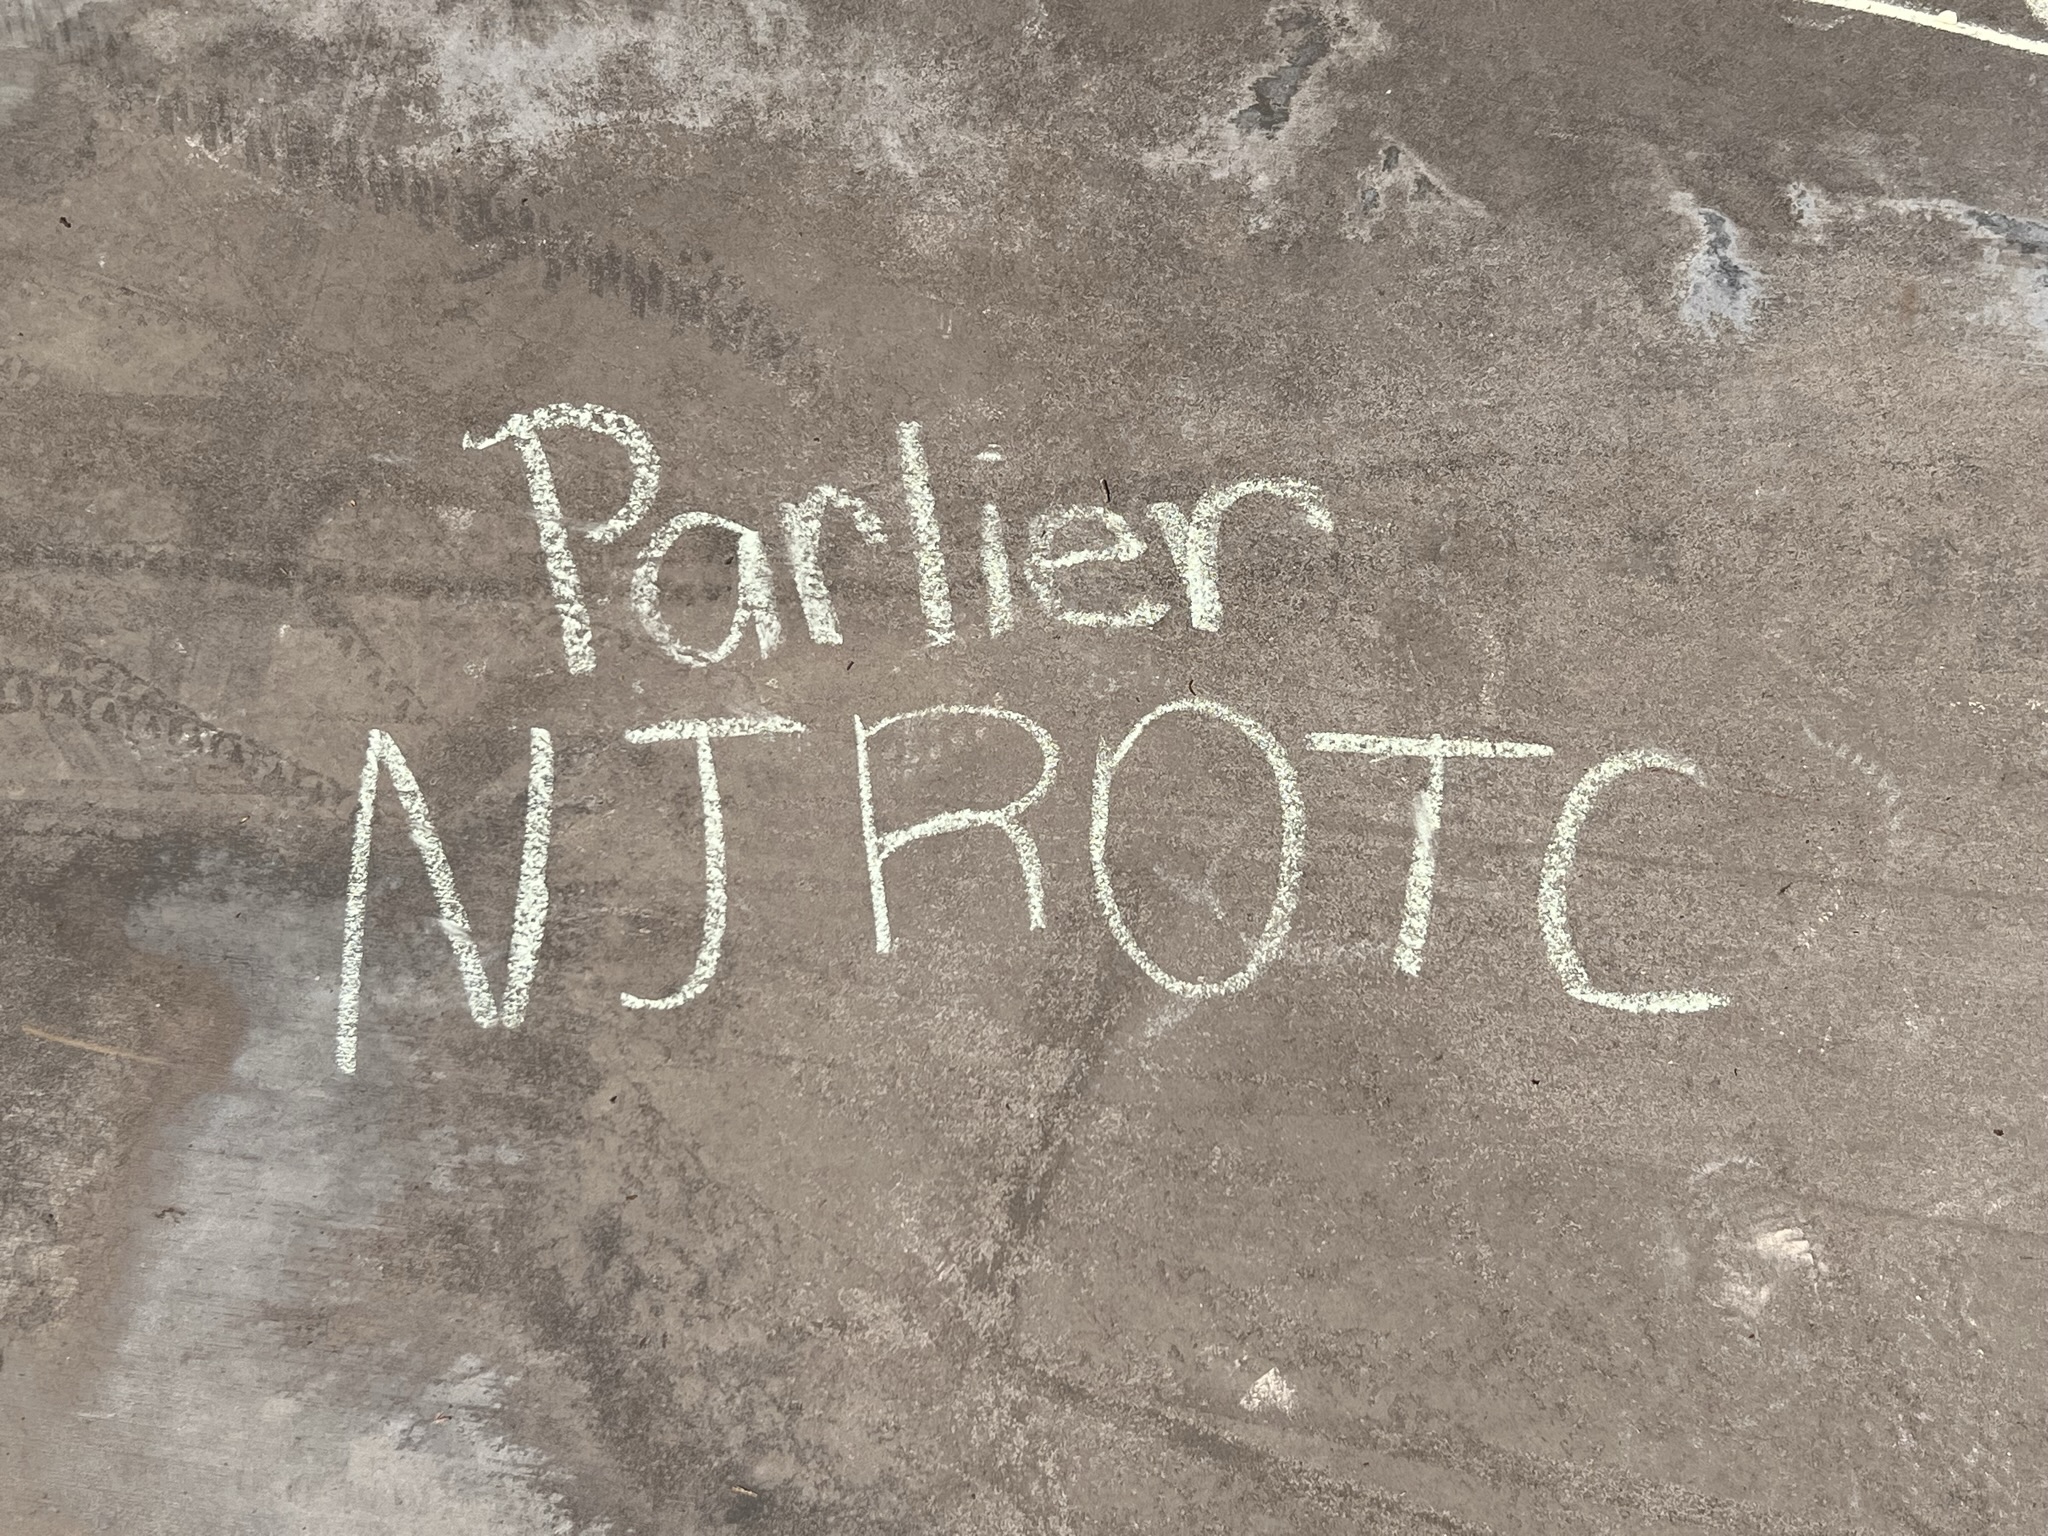 Parlier
NJROTC